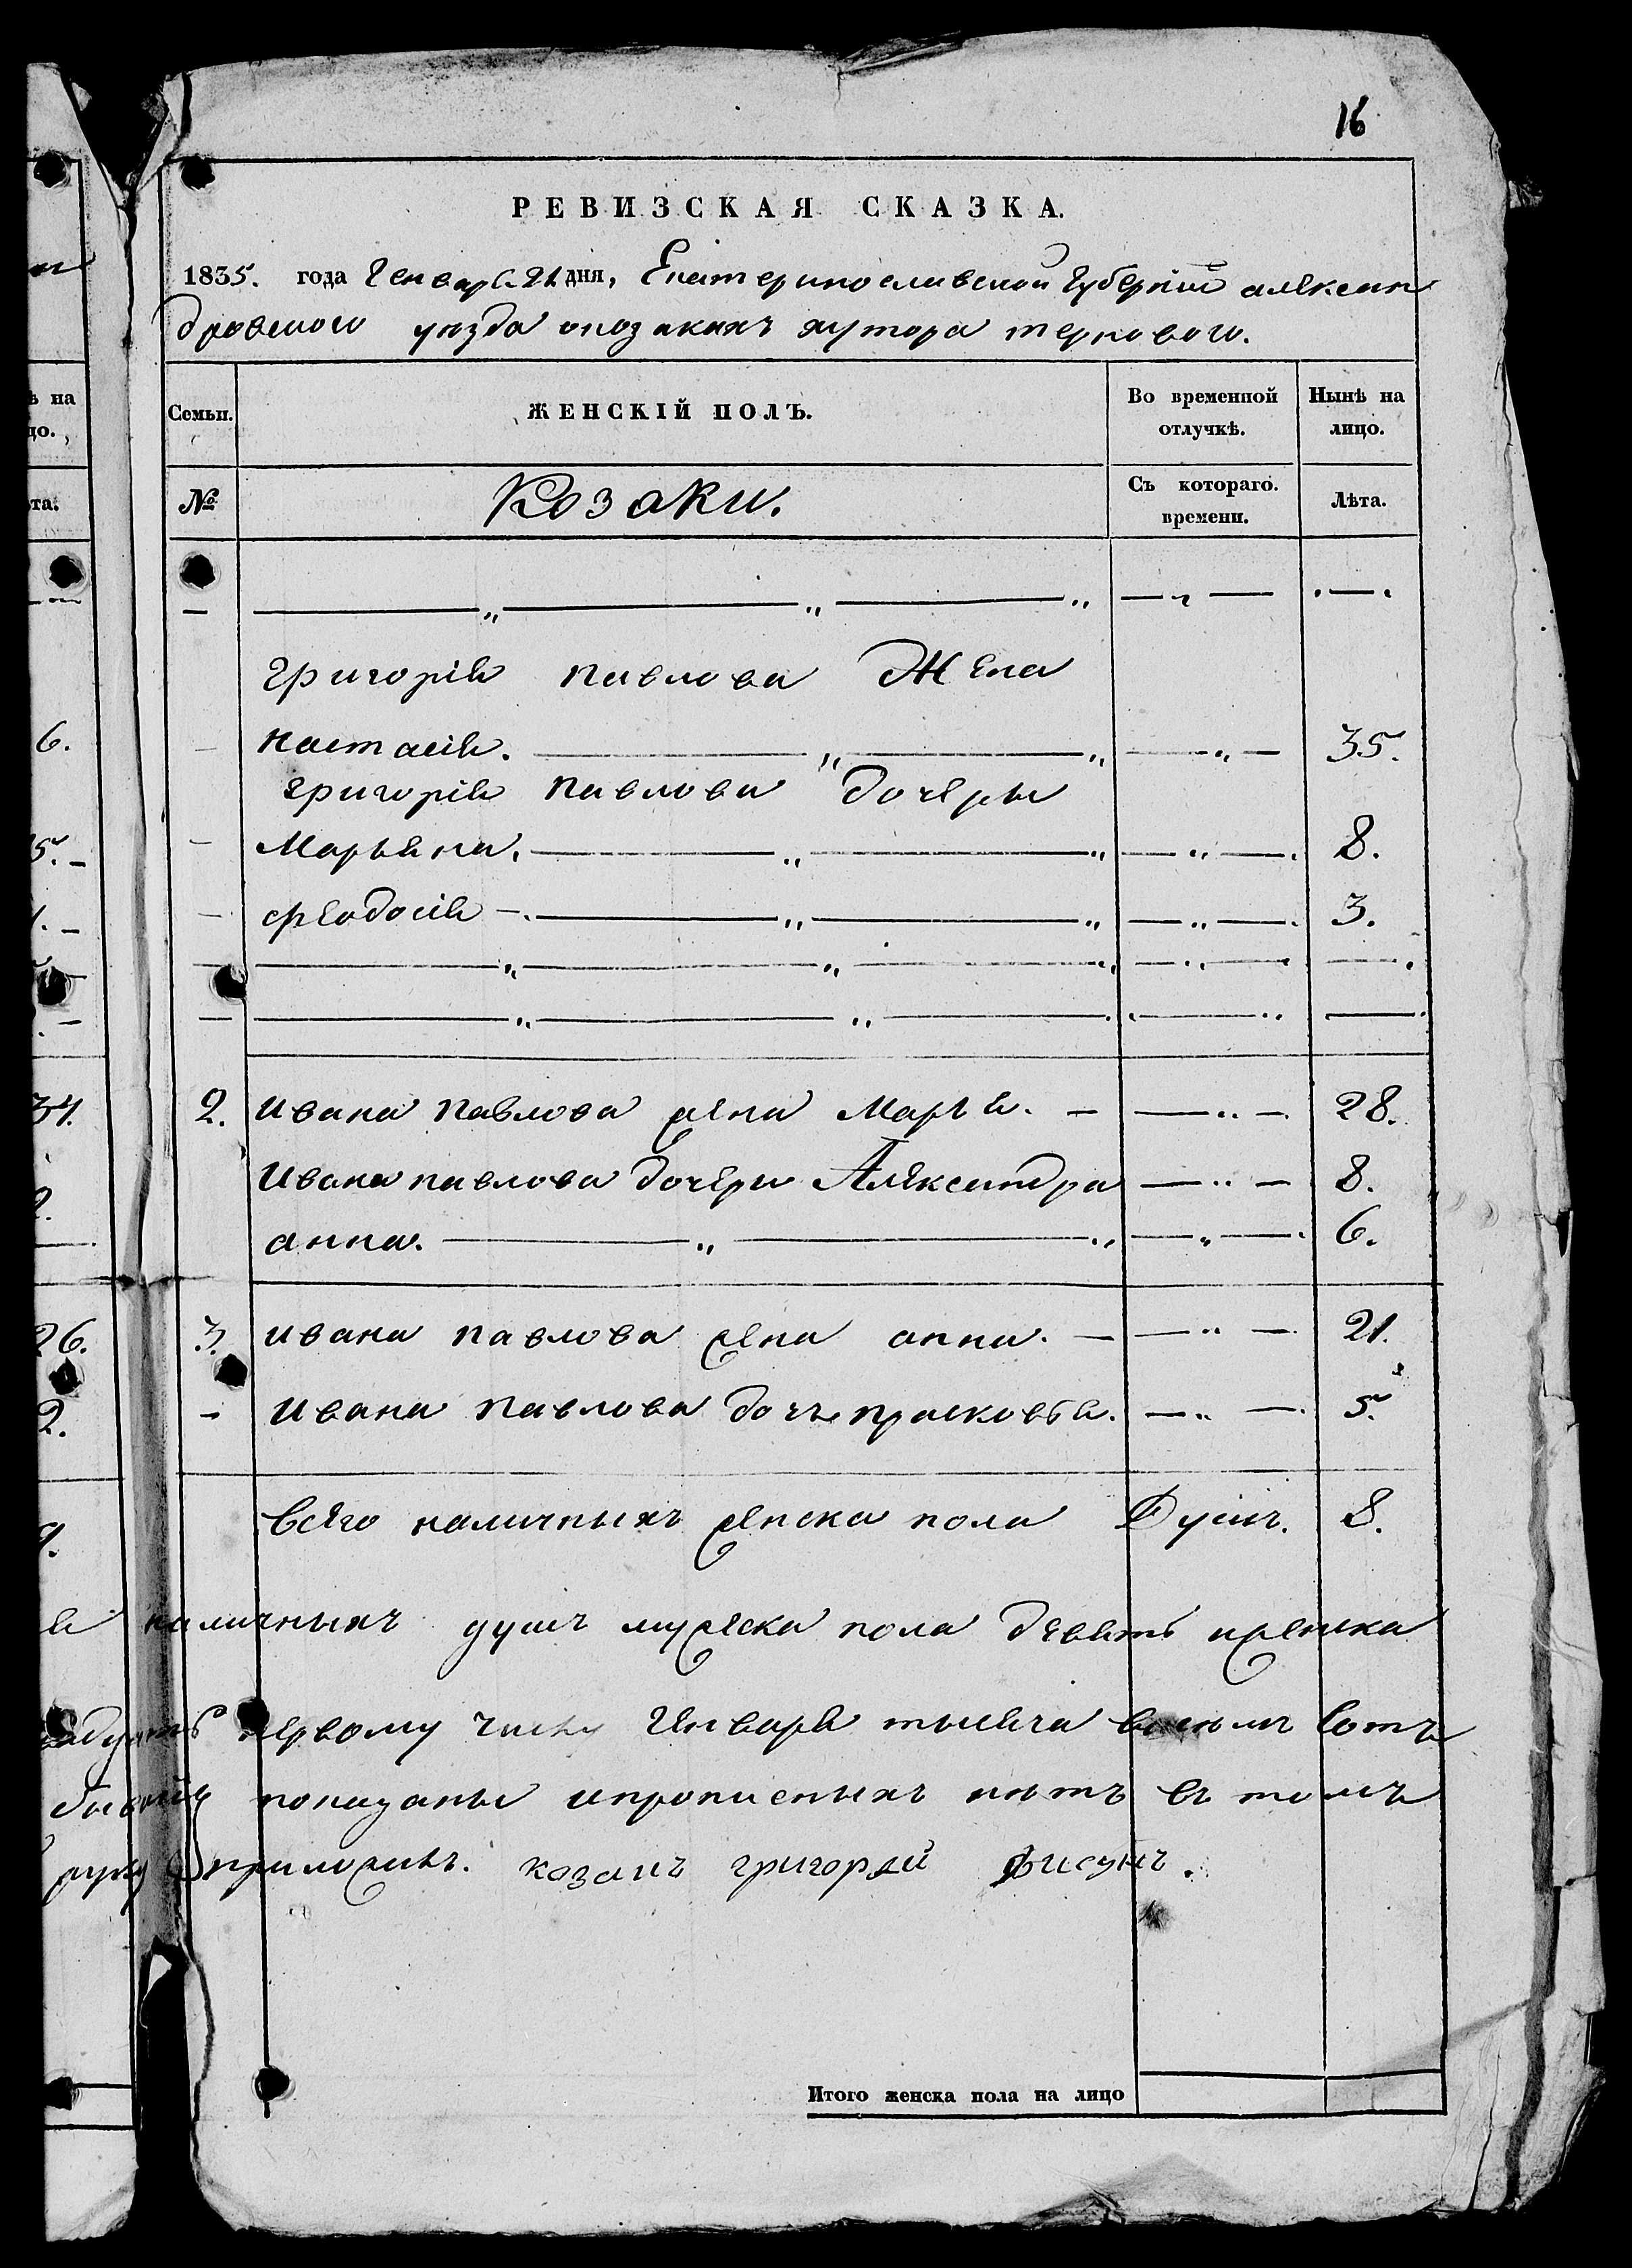 16
РЕВИЗСКАЯ СКАЗКА.
1835. года Генваря 21 дня, Екатеринославской Губернiи алексан
дровского уѣзда окозакахъ хутора тернового.
ѣ на
цо.
Семьи.
ЖЕНСКІЙ ПОЛЪ.
Во временной
отлучкѣ.
Нынѣ на
лицо.
ѣта.
№
Козаки.
Съ котораго.
времени.
Лѣта.
григорія павлова Жена
6.
настасія. 35.
григорія павлова дочеры
5. марьяна. 8.
феодосія 3.
34. 2. ивана павлова жена марья. 28.
2. ивана павлова дочери Александра 8.
анна. 6.
26. 3. ивана павлова жена анна. 21.
2. ивана павлова дочь прасковья. 5.
9. всего наличныхъ женска пола Душъ. 8.
я наличныхъ душъ мужеска пола девять иженска
первому числу Генваря тысяча восемъ сотъ
показаны ипрописныхъ нѣтъ въ томъ
руку приложилъ. козакъ григорѣй фисунъ.
Итого женска пола на лицо